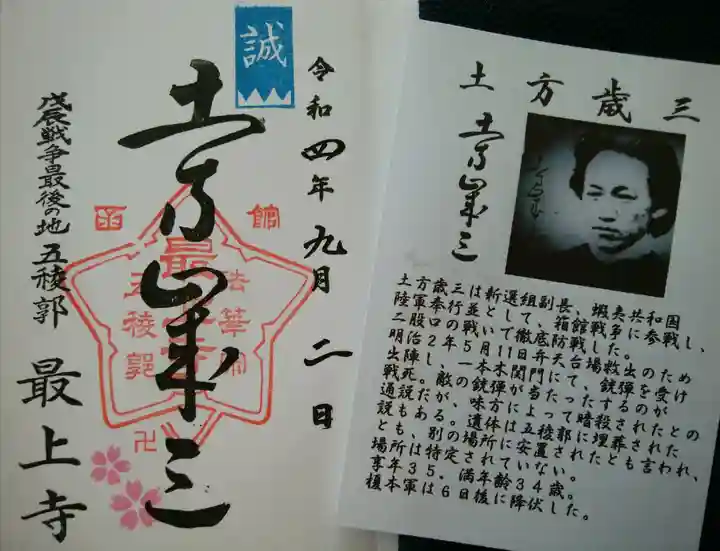 誠
令和四年九月二日
土方歳三
函館
最上寺
法華宗
五稜郭
卍
戊辰戦争最後の地 五稜郭
最上寺
土方歳三
土方歳三
土方歳三は新選組副長、蝦夷共和国
陸軍奉行並として、箱館戦争に参戦し、
二股口の戦いで徹底防戦した。
明治2年5月11日弁天台場救出のため
出陣し、一本木関門にて、銃弾を受け
戦死。敵の銃弾が当たったするのが
通説だが、味方によって暗殺されたとの
説もある。遺体は五稜郭に埋葬された
とも、別の場所に安置されたとも言われ、
場所は特定されていない。
享年35。満年齢34歳。
榎本軍は6日後に降伏した。